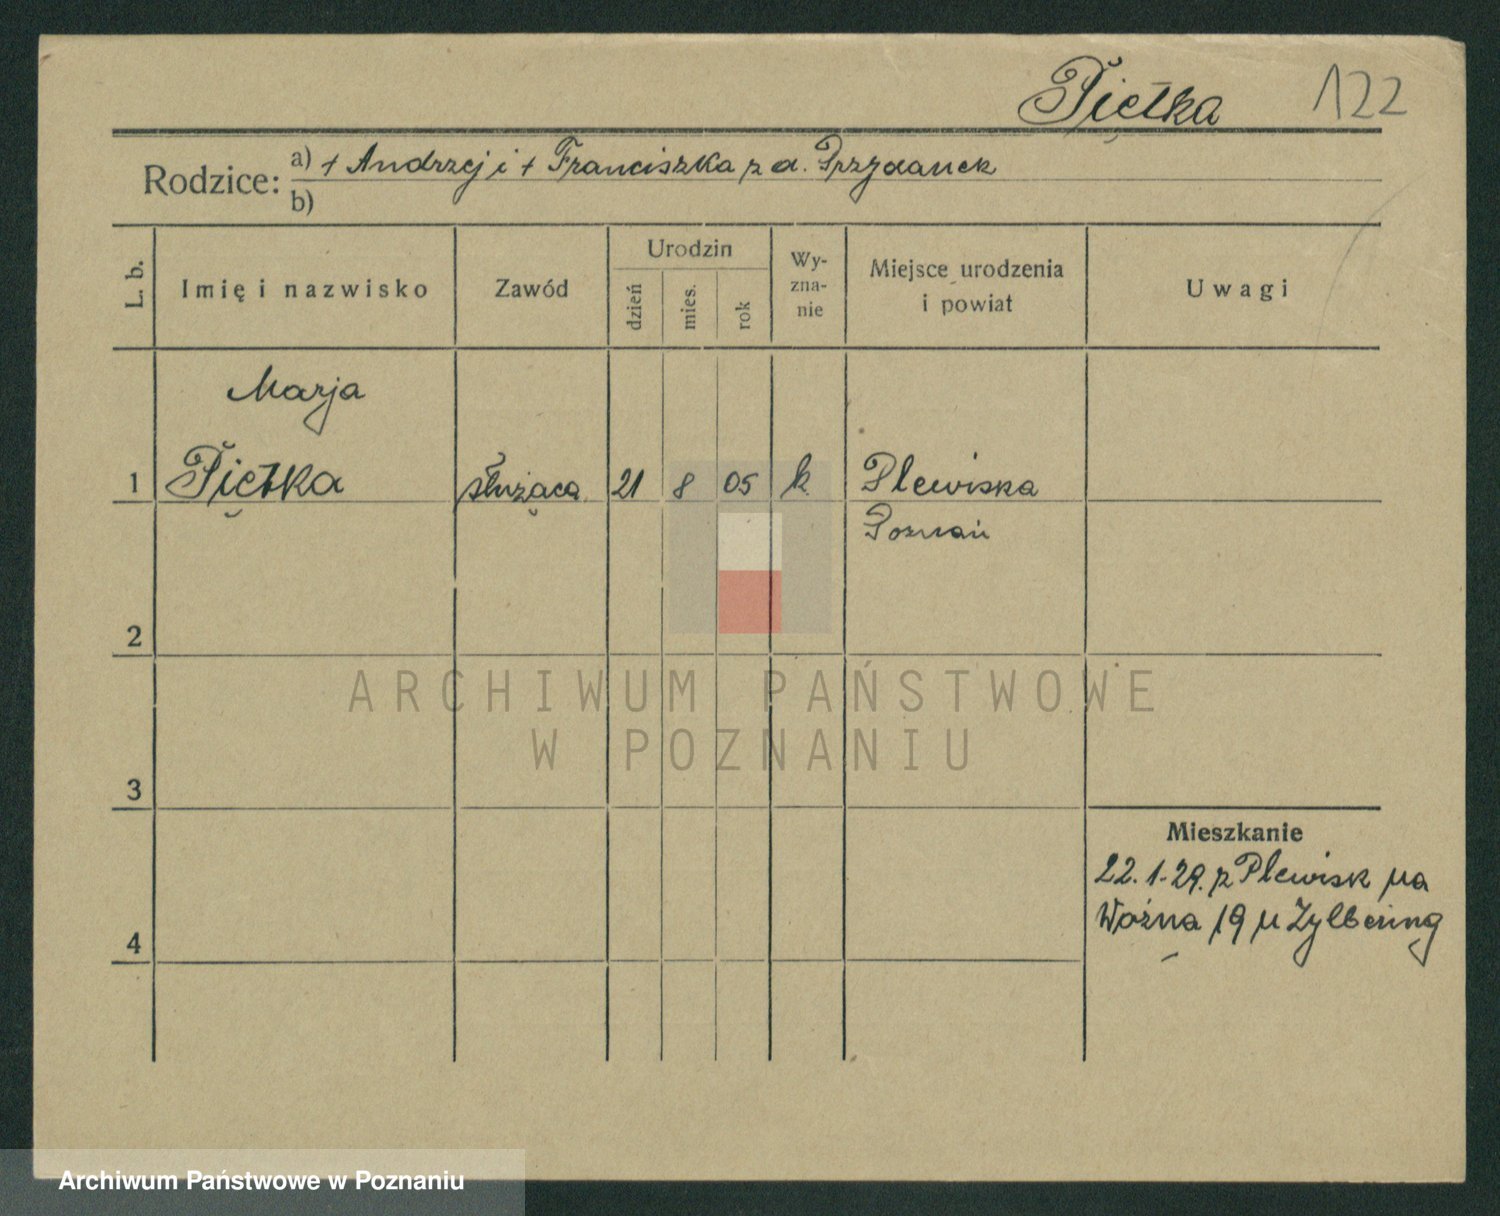 Piętka 122
Rodzice: a) + Andrzej i + Franciszka z d. Przydanek
b)
L. b. Imię i nazwisko Zawód Urodzin dzień mies. rok Wy-zna-nie Miejsce urodzenia i powiat Uwagi
Marja
1 Piętka służąca 21 8 05 k. Plewiska
Poznań
2
ARCHIWUM PAŃSTWOWE
W POZNANIU
3
Mieszkanie
22.1.29. z Plewisk na
4 Woźna 19 u Zylbering
Archiwum Państwowe w Poznaniu